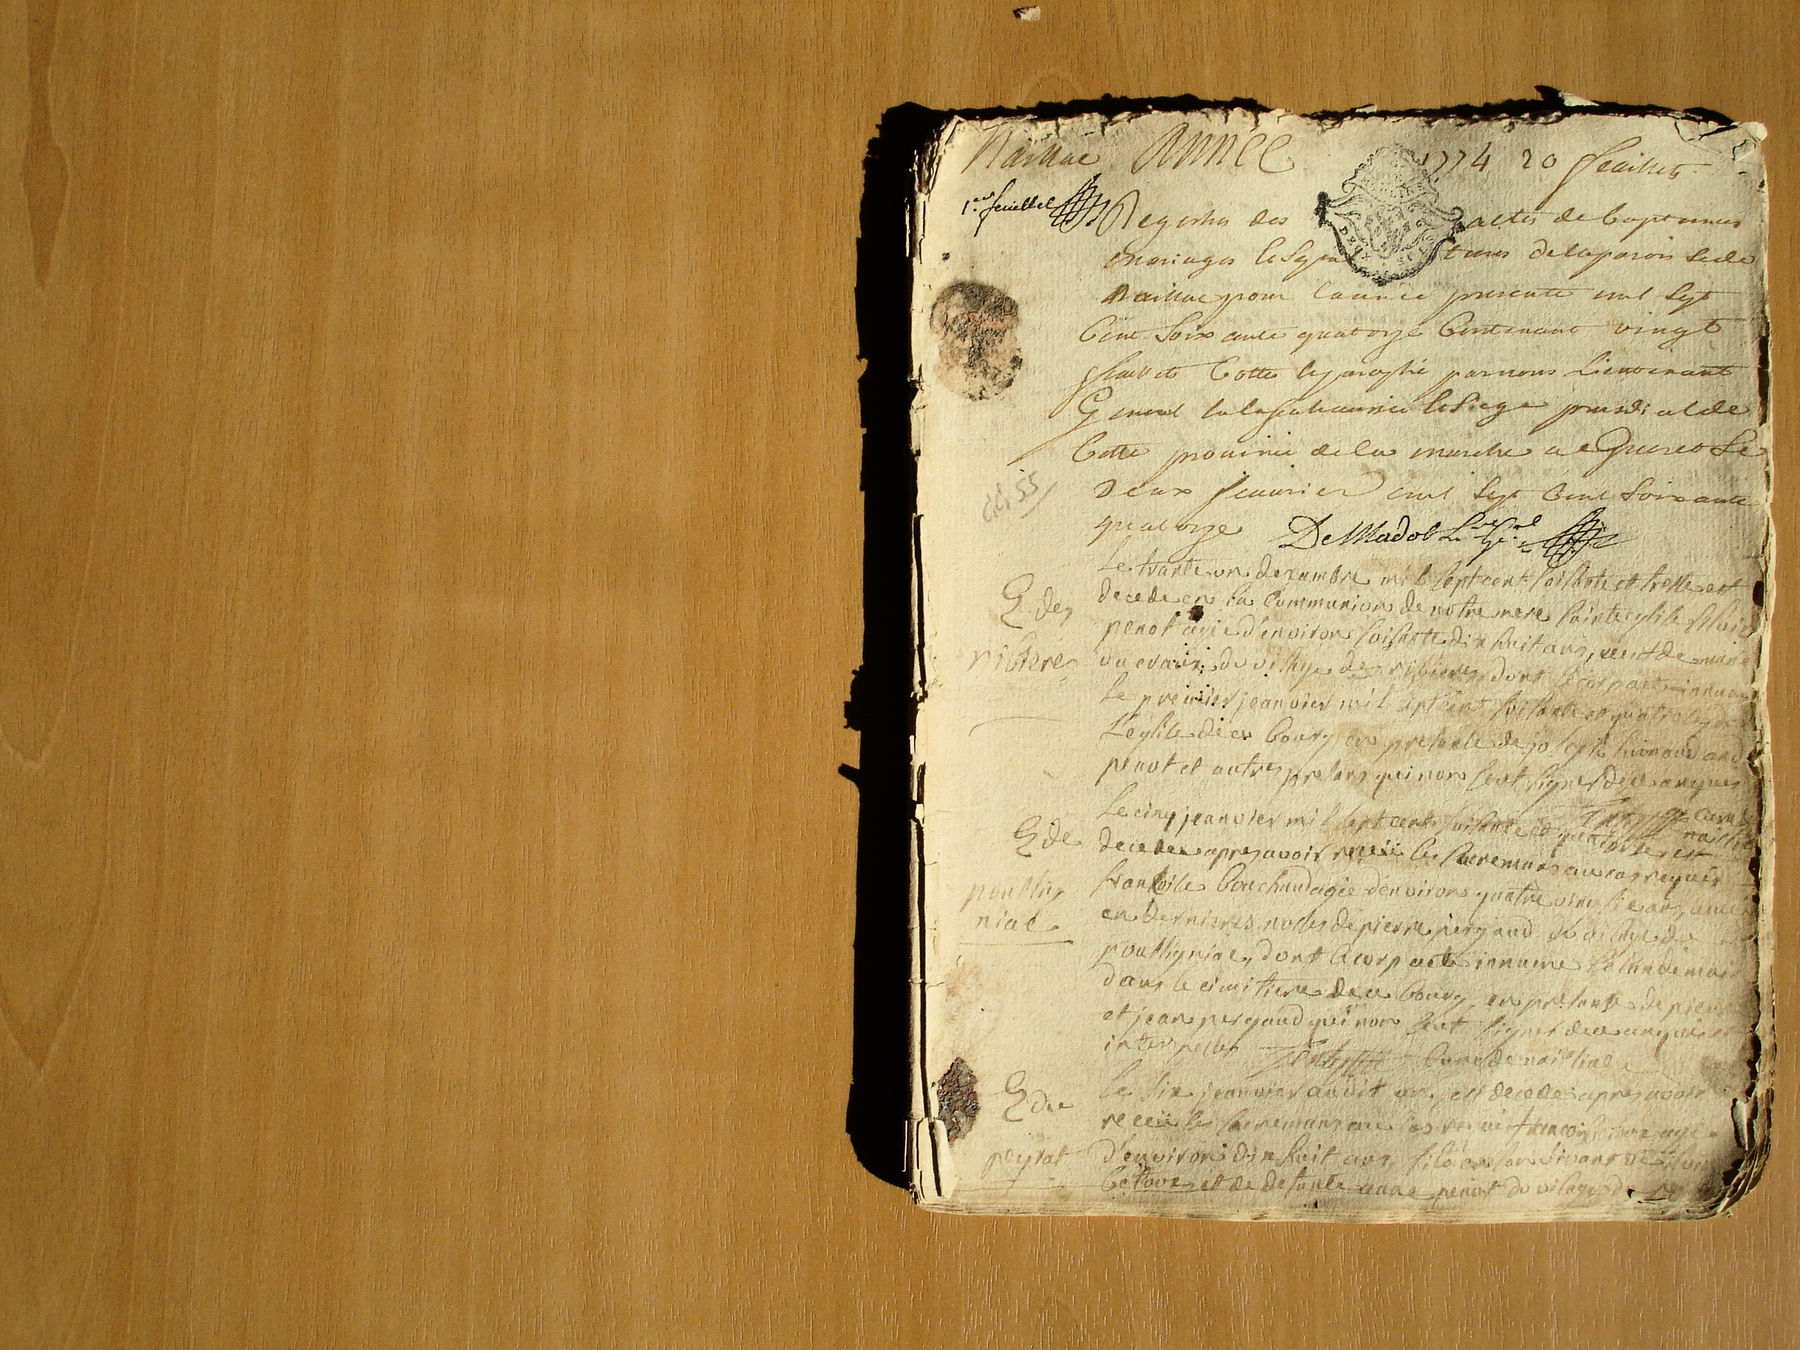 Naillac Année 1774 20 feuillets
1er feuillet
Registre des actes de baptemes
mariages et sepultures de la paroisse de
Naillac pour l'année presente mil sept
cent soixante quatorze contenant vingt
feuillets cotté et paraphé par nous lieutenant
general en la senechaussée et siege presidial de
cette province de la marche a Gueret le
deux janvier mil sept cent soixante
quatorze De Madot
Le trante un dexambre mil sept cent soisante et trese est
E des
decede en la communion de notre mere sainte eglise
penot agée d'environ soisante dix huit ans,
ribieres
du vilage des ribieres dont le corp a été innumé
Le premier jeanvier mil sept cent soisante et quatorse
L'eglise de ce bourg en presance de
penot et autres presans qui non seut signer de ce anquis
curé de naillac
Le cinq jeanvier mil sept cent soisante et quatorse est
E de
decedee apres avoir receü les sacremans au cas requis
fransoise bouchaud agée d'environ quatre vins six ans,
pouthig
en dernieres noses de pierre pergaud du vilage de
niac
pouthigniac, dont le corp a eté innumé le landemain
dans le cimitiere de ce bourg, en presance de pierre
et jean pergaud qui non seut signer de ce anquis et
interpeller curé de naillac
Le six jeanvier audit an est decedé apres avoir
E du
receü les sacremans au cas requis francois agé
peyrat
d'environ dix huit ans, fils
et de defunte anne penot du vilage du